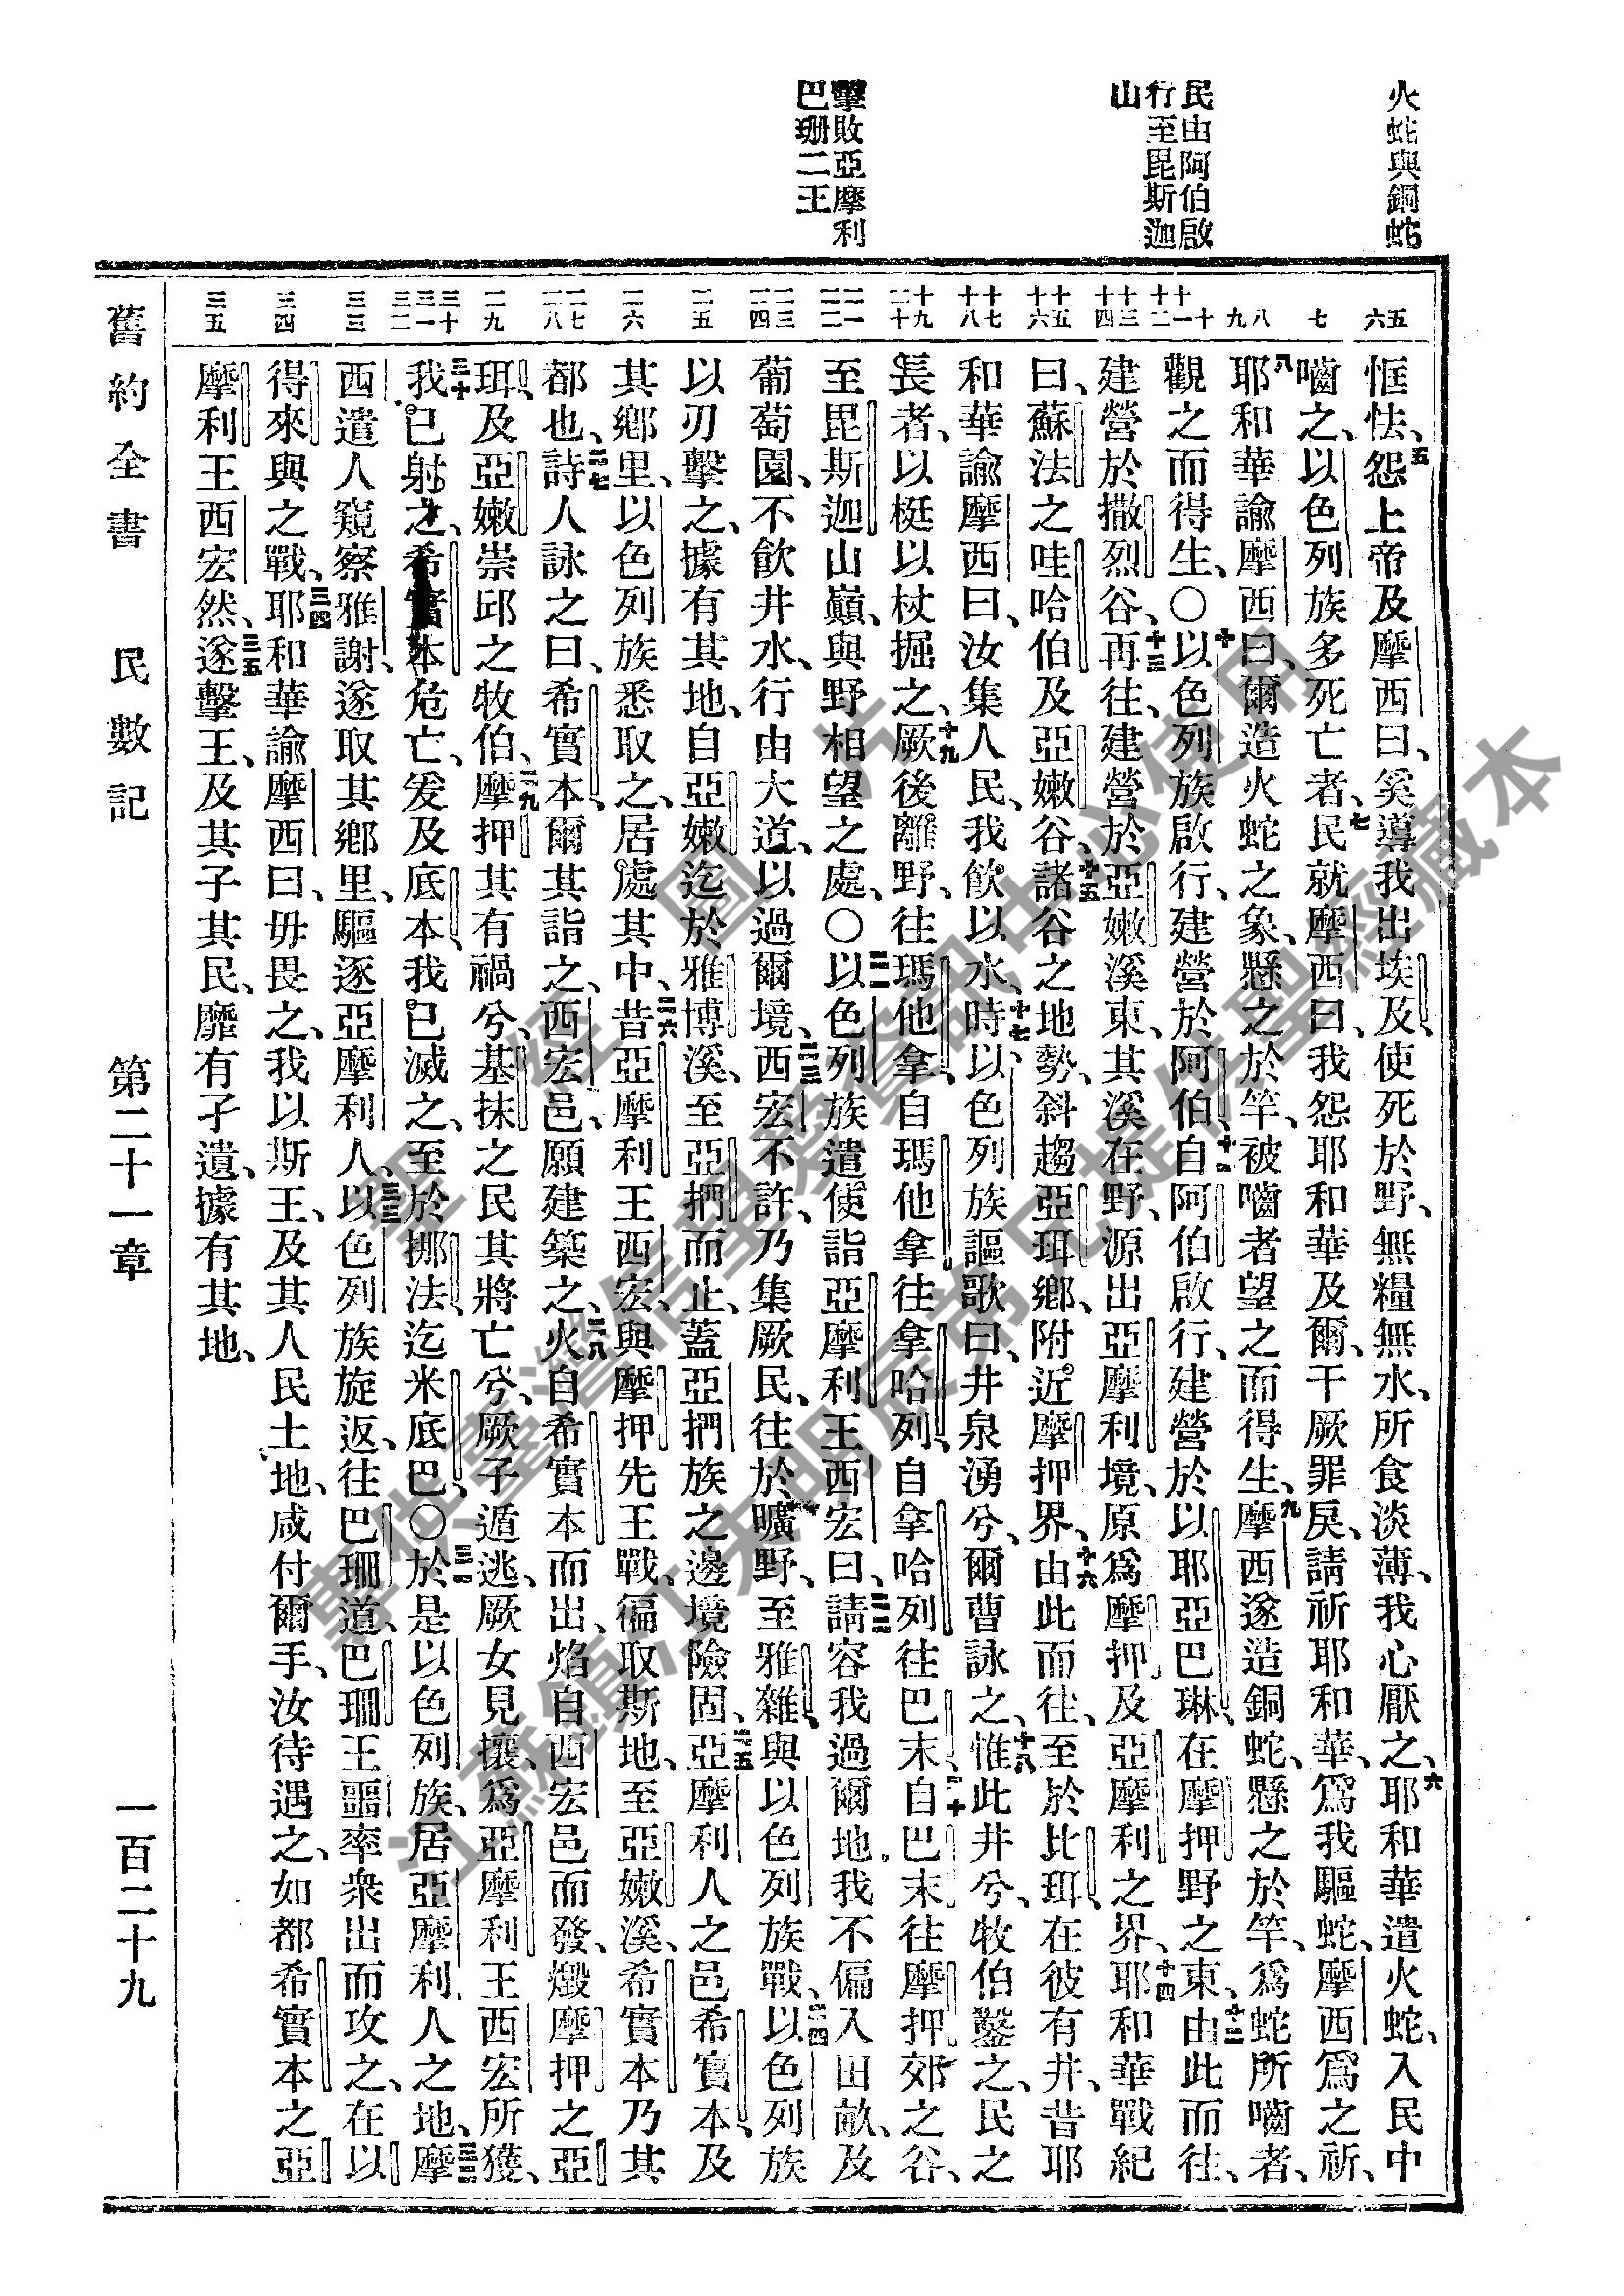 火蛇與銅蛇
民由阿伯啟
行至毘斯迦
山
擊敗亞摩利
巴珊二王
五 六
七
八 九
十 十一 十二
十三 十四
十五 十六
十七 十八
十九 二十
二一 二二
二三 二四
二五
二六
二七 二八
二九
三十 三一 三二
三三
三四
三五
恇怯、五怨上帝及摩西曰、奚導我出埃及、使死於野、無糧無水、所食淡薄、我心厭之、六耶和華遣火蛇、入民中
嚙之、以色列族多死亡者、七民就摩西曰、我怨耶和華及爾、干厥罪戾、請祈耶和華、爲我驅蛇、摩西爲之祈、
八耶和華諭摩西曰、爾造火蛇之象、懸之於竿、被嚙者望之而得生、九摩西遂造銅蛇、懸之於竿、爲蛇所嚙者、
觀之而得生、〇十以色列族啟行、建營於阿伯、十一自阿伯啟行、建營於以耶亞巴琳、在摩押野之東、十二由此而往、
建營於撒烈谷、十三再往、建營於亞嫩溪東、其溪在野、源出亞摩利境、原爲摩押及亞摩利之界、十四耶和華戰紀
曰、蘇法之哇哈伯及亞嫩谷、十五諸谷之地勢、斜趨亞珥鄉、附近摩押界、十六由此而往、至於比珥、在彼有井、昔耶
和華諭摩西曰、汝集人民、我飲以水、十七時、以色列族謳歌曰、井泉湧兮、爾曹詠之、十八惟此井兮、牧伯鑿之、民之
長者、以梃以杖掘之、十九厥後離野、往瑪他拿、自瑪他拿往拿哈列、自拿哈列往巴末、二十自巴末往摩押郊之谷、
至毘斯迦山巔、與野相望之處、〇二一以色列族遣使詣亞摩利王西宏曰、二二請容我過爾地、我不偏入田畝、及
葡萄園、不飲井水、行由大道、以過爾境、二三西宏不許、乃集厥民、往於曠野、至雅雜、與以色列族戰、二四以色列族
以刃擊之、據有其地、自亞嫩迄於雅博溪、至亞捫而止、蓋亞捫族之邊境險固、二五亞摩利人之邑希實本、及
其鄉里、以色列族悉取之、居處其中、二六昔亞摩利王西宏、與摩押先王戰、徧取斯地、至亞嫩溪、希實本乃其
都也、二七詩人詠之曰、希實本、爾其詣之、西宏邑、願建築之、二八火自希實本而出、焰自西宏邑而發、燬摩押之亞
珥、及亞嫩崇邱之牧伯、二九摩押其有禍兮、基抹之民其將亡兮、厥子遁逃、厥女見攘、爲亞摩利王西宏所獲、
三十我已射之、希實本危亡、爰及底本、我已滅之、至於挪法、迄米底巴、〇三一於是以色列族、居亞摩利人之地、三二摩
西遣人窺察雅謝、遂取其鄉里、驅逐亞摩利人、三三以色列族旋返、往巴珊道、巴珊王噩率衆出而攻之、在以
得來與之戰、三四耶和華諭摩西曰、毋畏之、我以斯王、及其人民土地、咸付爾手、汝待遇之、如都希實本之亞
摩利王西宏然、三五遂擊王、及其子其民、靡有孑遺、據有其地、
舊約全書　民數記　第二十一章　一百二十九
聖經圖片
專供臺灣信望愛資訊中心使用
江蘇鎮江朱明辰常兄提供聖經藏本